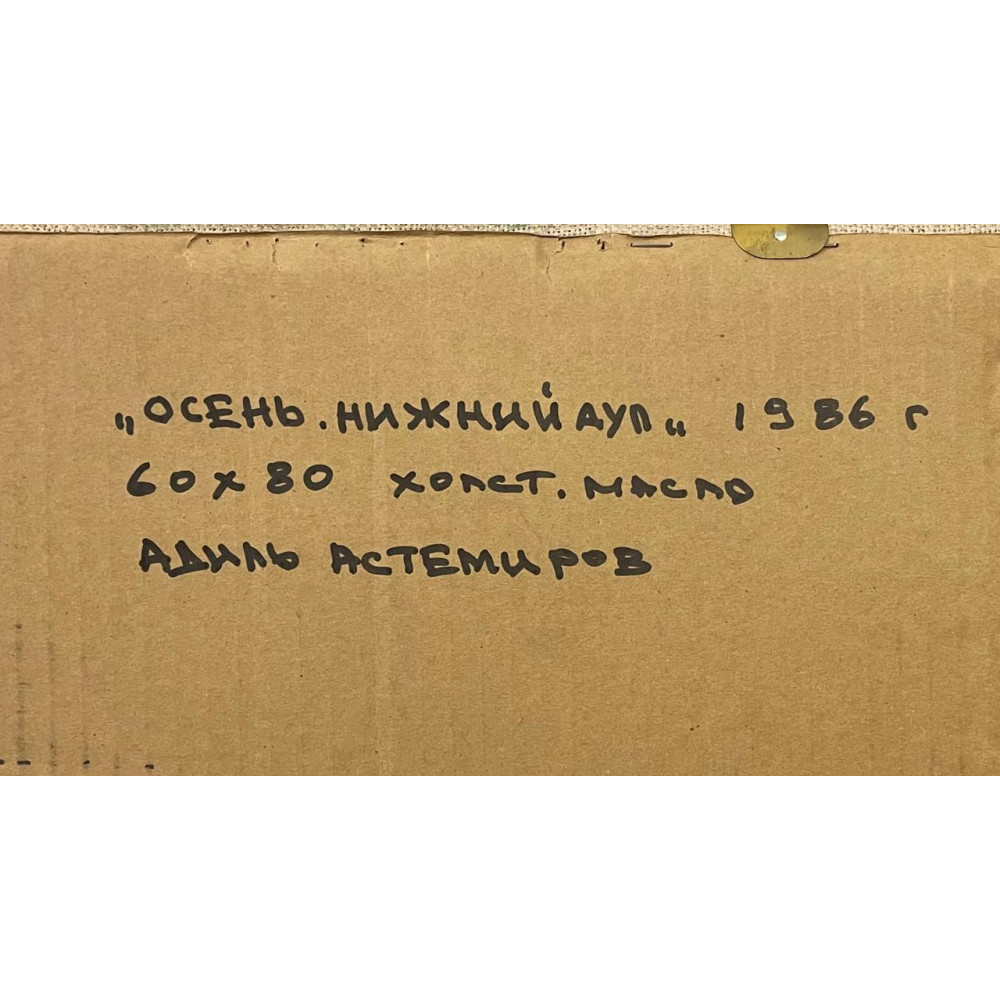 „ОСЕНЬ. НИЖНИЙ ДУЛ„ 1986 г
60 х 80 ХОЛСТ. МАСЛО
АДИЛЬ АСТЕМИРОВ